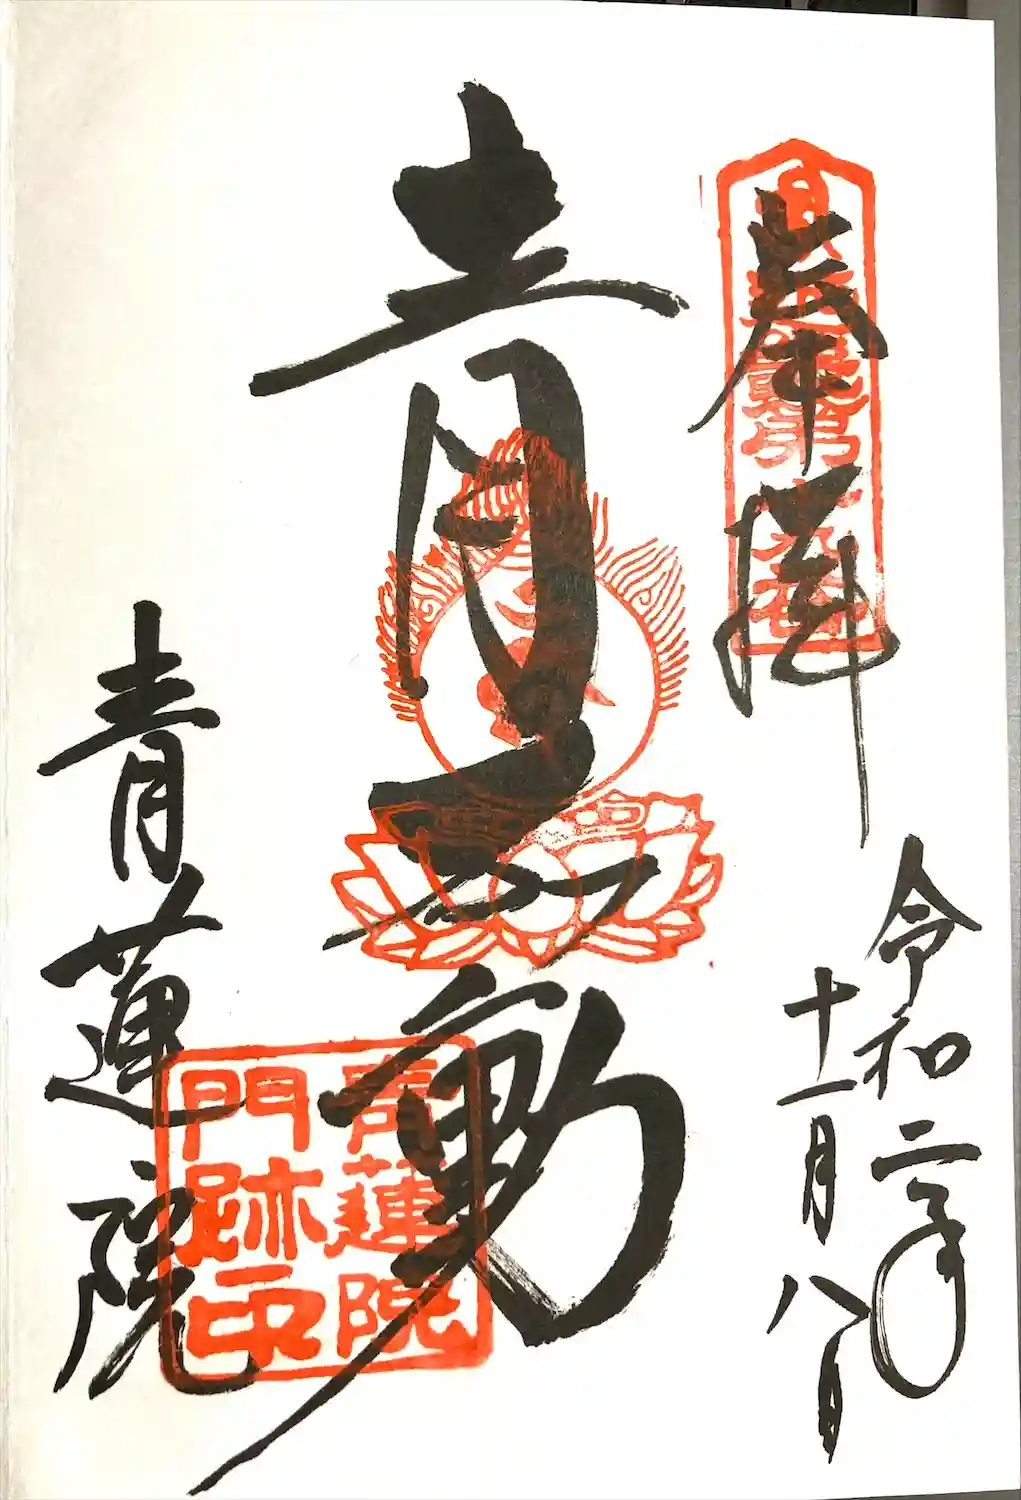 奉拝
令和二年
十一月八日
青不動
青蓮院
青蓮院
門跡印